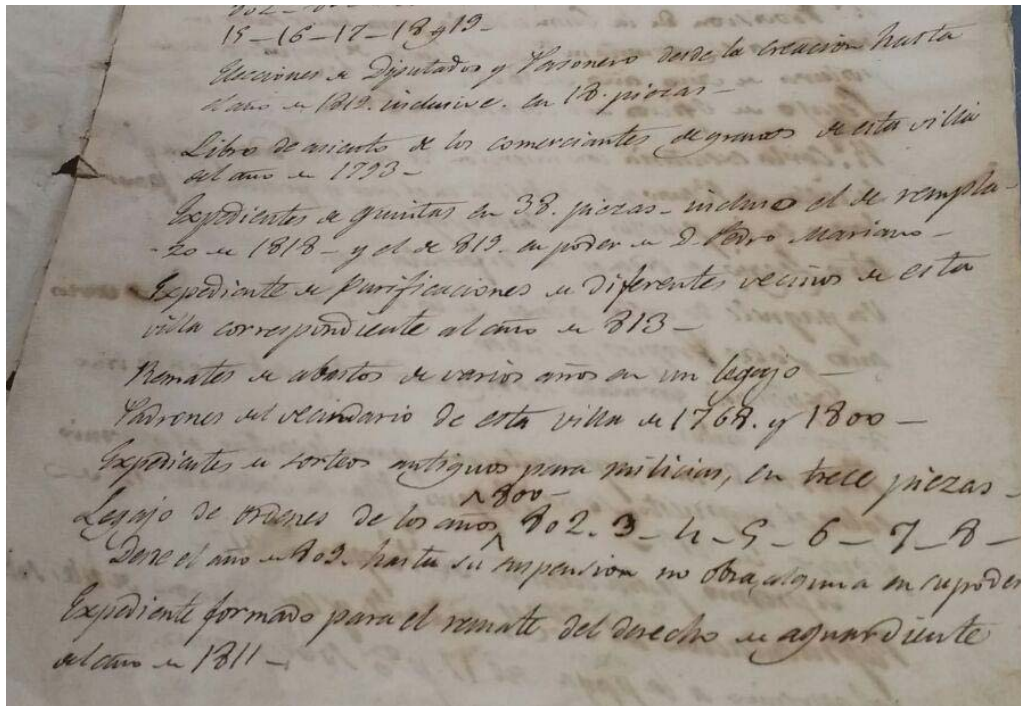 15-16-17-18 y 19-
Elecciones de Diputados y Personero desde la creacion hasta
el año de 1819. inclusive. en 18. piezas-
Libro de asiento de los comerciantes de granos de esta villa
del año de 1793-
Expedientes de quintas en 38. piezas- incluso el de rempla-
-zo de 1818- y el de 819. en poder de D. Pedro Mariano-
Expediente de Purificaciones de Diferentes vecinos de esta
villa correspondiente al año de 813-
Remates de abastos de varios años en un legajo-
Padrones del vecindario de esta villa de 1768. y 1800-
Expedientes de sorteos antiguos para milicias, en trece piezas-
Legajo de ordenes de los años ^800- 802. 3-4-5-6-7-8-
Desde el año de 809. hasta su suspension no obra alguna en su poder
Expediente formado para el remate del derecho de aguardiente
del año de 1811-